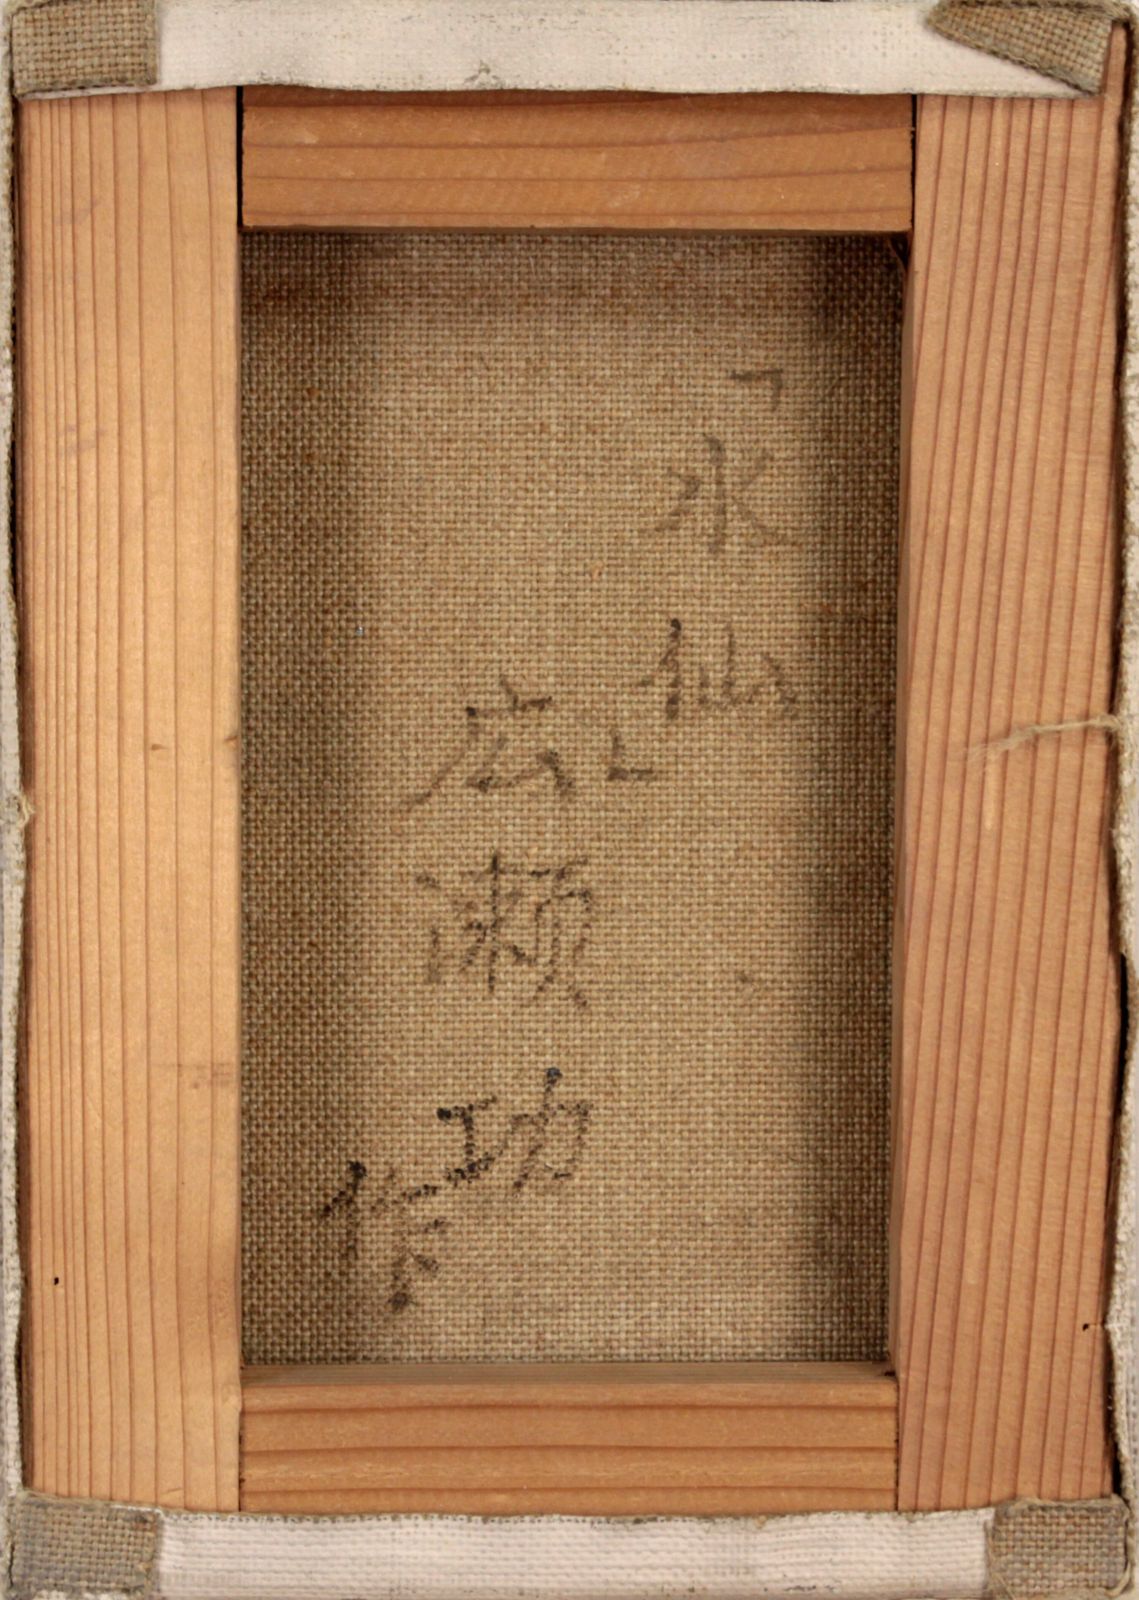 「水仙」
広瀬功作